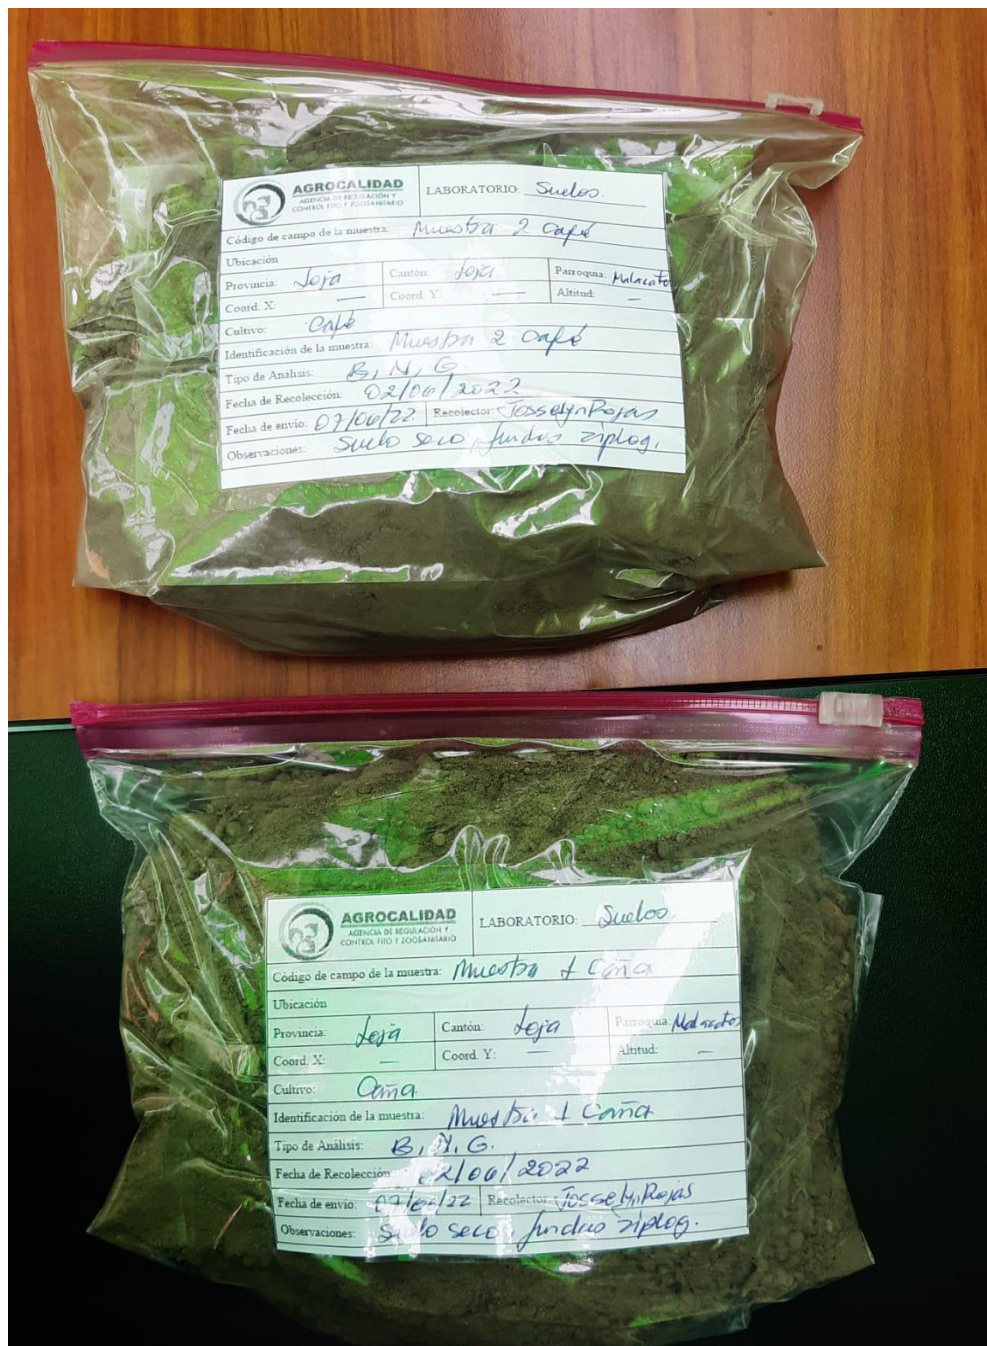 AGROCALIDAD
AGENCIA DE REGULACIÓN Y
CONTROL FITO Y ZOOSANITARIO
LABORATORIO: Suelos.
Código de campo de la muestra: Muestra 2 Café
Ubicación
Provincia: Loja Cantón: Loja Parroquia: Malacatos
Coord. X: — Coord. Y: — Altitud: —
Cultivo: Café
Identificación de la muestra: Muestra 2 Café
Tipo de Análisis: B, N, G.
Fecha de Recolección: 02/06/2022
Fecha de envio: 07/06/22 Recolector: Josselyn Rojas
Observaciones: Suelo seco, fundas ziplog.
AGROCALIDAD
AGENCIA DE REGULACIÓN Y
CONTROL FITO Y ZOOSANITARIO
LABORATORIO: Suelos.
Código de campo de la muestra: Muestra 1 Caña
Ubicación
Provincia: Loja Cantón: Loja Parroquia: Malacatos
Coord. X: — Coord. Y: — Altitud: —
Cultivo: Caña
Identificación de la muestra: Muestra 1 Caña
Tipo de Análisis: B, N, G.
Fecha de Recolección: 02/06/2022
Fecha de envio: 07/06/22 Recolector: Josselyn Rojas
Observaciones: Suelo seco, fundas ziplog.